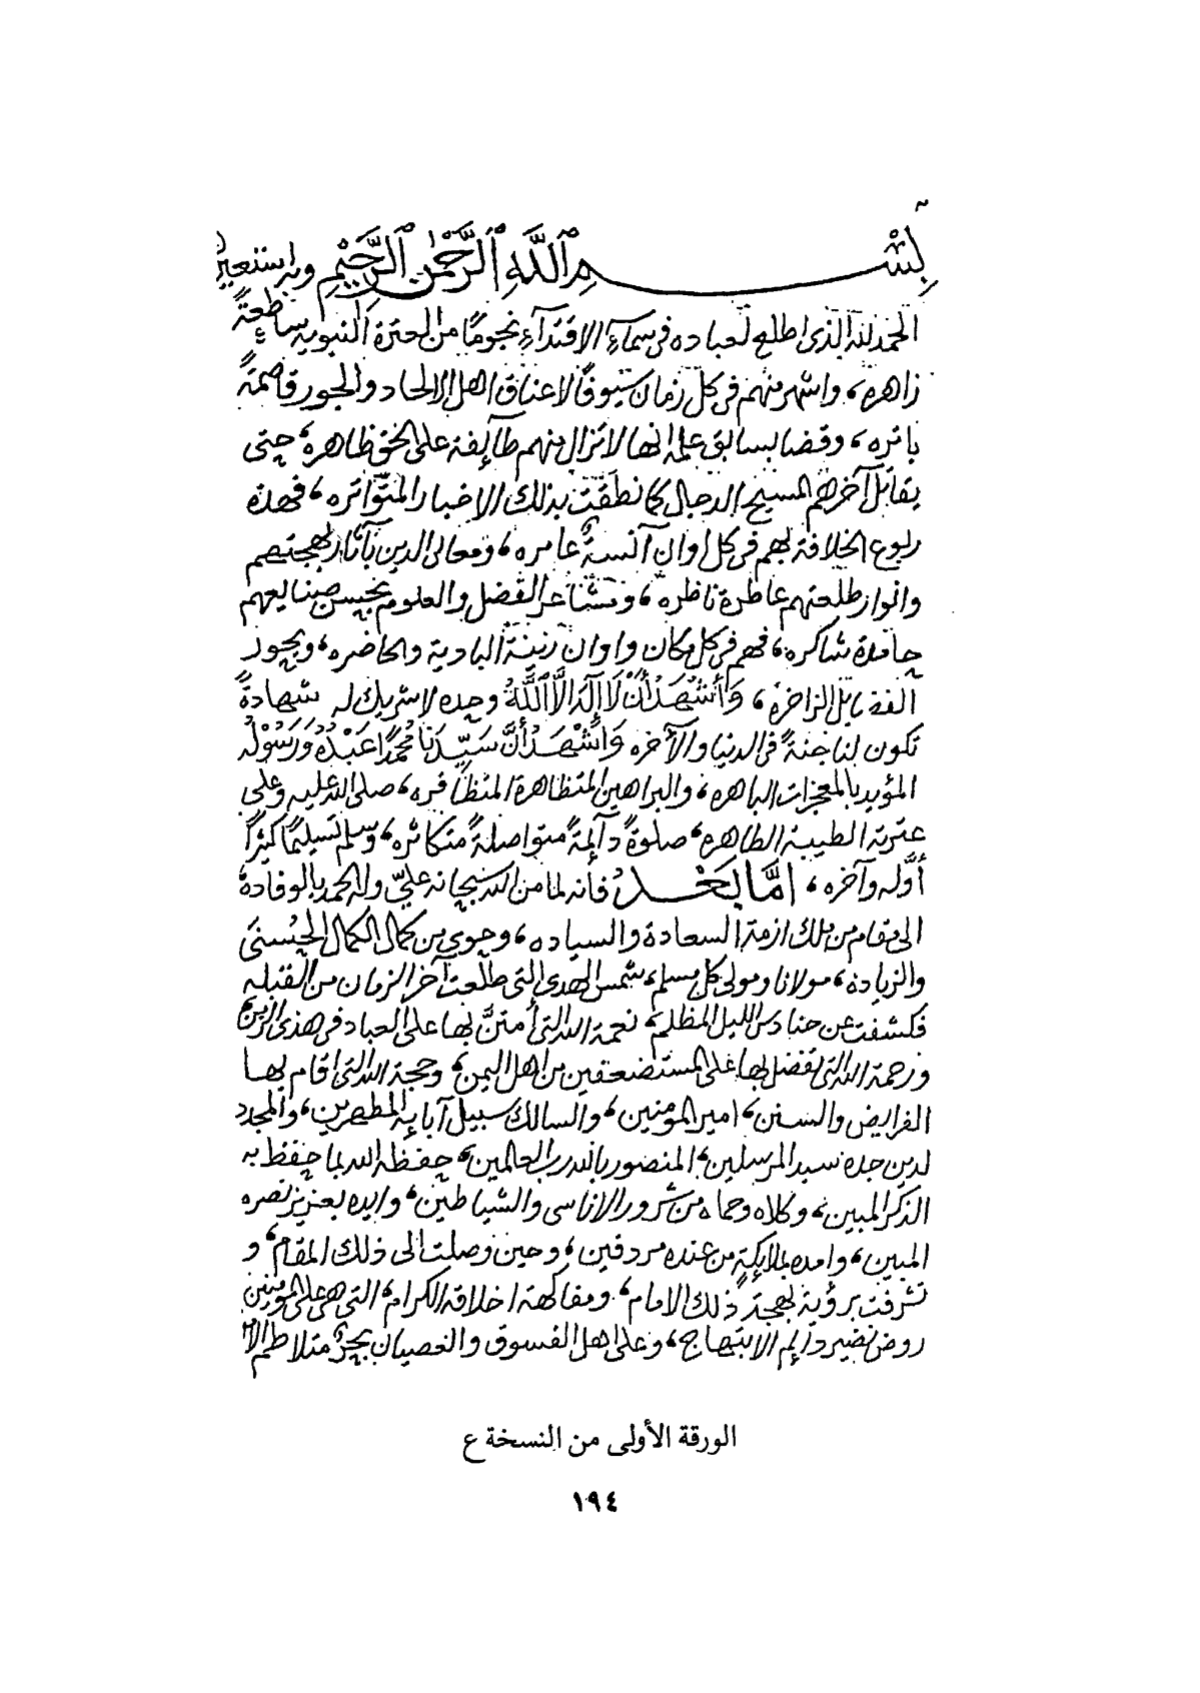 بِسْمِ ٱللَّهِ ٱلرَّحْمٰنِ ٱلرَّحِيْمِ وبه استعين
الحمد لله الذي اطلع لعباده في سمآءِ الاقتدآءِ نجومًا من العترة النبويه ساطعةً
زاهره، واشهر منهم في كل زمان سيوفًا لاعناق اهل الالحاد والجور قاصمةً
باتره، وقضا بسابق علمه انها لا تزال منهم طآئفة على الحق ظاهره، حتى
يقاتل آخرهم المسيح الدجال كما نطقت بذلك الاخبار المتواتره، فهذه
ربوع الخلافة بهم في كل اوان آنسةٌ عامره، ومعالي الدين بآثار بهجتهم
وانوار طلعتهم عاطرة ناظره، ومشاعر الفضل والعلوم بحسن صنايعهم
حامدة شاكره، فهم في كل مكان واوان زينة البادية والحاضره، وبحور
الفضايل الزاخره، وَأشْهَدُ أنْ لَا إلَهَ الَّا ٱللَّهُ وحده لا شريك له شهادةً
تكون لنا جنةً في الدنيا والآخره وَاشْهَدُ أنَّ سَيِّدَنَا مُحَمَّدًا عَبْدُهُ وَرَسُوْلُهُ
المؤيد بالمعجزات الباهره، والبراهين المتظاهرة المتظافره، صلى الله عليه وعلى
عترته الطيبة الطاهره، صلوةً دآئمةً متواصلةً متكاثره، وسلم تسليمًا كثيرًا
أوَّله وآخره، امَّا بَعْدُ فانه لما من الله سبحانه عليّ وله الحمد بالوفادة،
الى مقام من ملك ازمة السعادة والسياده، وحوى من كمال الكمال الحُسنى
والزيادة، مولانا ومولى كل مسلم، شمس الهدى التي طلعت آخر الزمان من القبله
فكشفت عن حنادس الليل المظلم، نعمة الله التي أمتنَّ بها على العباد في هذا الزمن
ورحمة الله التي تفضل بها على المستضعفين من اهل اليمن، وحجة الله التي اقام بها
الفرايض والسنن، امير المؤمنين، والسالك سبيل آبايه المطهرين، والمجدد
لدين جده سيد المرسلين، المنصور بالله رب العالمين، حفظه الله بما حفظ به
الذكر المبين، وكلاه وحماه من شرور الاناسي والشياطين، وايده بعزيز نصره
المبين، وامده بملايكةٍ من عنده مردفين، وحين وصلت الى ذلك المقام، و
تشرفت برؤية بهجة ذلك الامام، ومفاكهة اخلاقه الكرام، التي هي على المؤمنين
روض نضير دايم الابتهاج، وعلى اهل الفسوق والعصيان بحرٌ متلاطم الا
الورقة الأولى من النسخة ع
١٩٤